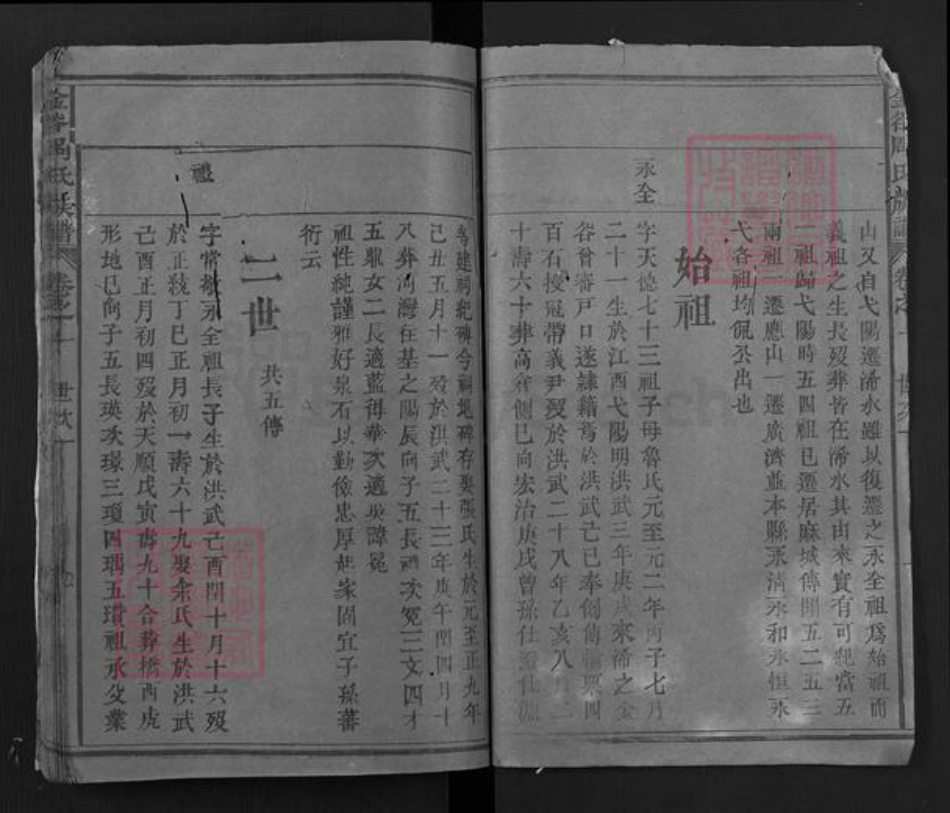 金谷周氏族譜 卷之一 世次
山又自弋陽遷浠水雖以復遷之永全祖爲始祖而
義祖之生長歿葬皆在浠水其由來實有可紀當五
二祖歸弋陽時五四祖已遷居麻城傳聞五二五三
兩祖一遷應山一遷廣濟並本縣永清永和永恒永
弋各祖均佩公出也
始祖
永全
字天德七十三祖子母魯氏元至元二年丙子七月
二十一生於江西弋陽明洪武三年庚戌來浠之金
谷貿審戶口遂隸籍焉於洪武己巳奉例備輸粟四
百石授冠帶義尹歿於洪武二十八年乙亥八月二
十壽六十葬高倉側巳向宏治庚戌曾孫仕 仕淵
等建祠紀碑今祠圯碑存娶張氏生於元至正九年
己丑五月十一歿於洪武二十三年庚午閏四月十
八葬河灣在基之陽辰向子五長禮次冕三文四才
五服女二長適藍得華次適吳諱冕
祖性純謹雅好泉石以勤儉忠厚起家固宜子孫蕃
衍云
二世 共五傳
禮
字常敬永全祖長子生於洪武己酉閏十月十六歿
於正統丁巳正月初一壽六十九娶余氏生於洪武
己酉正月初四歿於天順戊寅壽九十合葬橋西虎
形地巳向子五長瑛次璟三瓊四瑀五瓚祖承父業
金谷周氏族譜 卷之一 世次